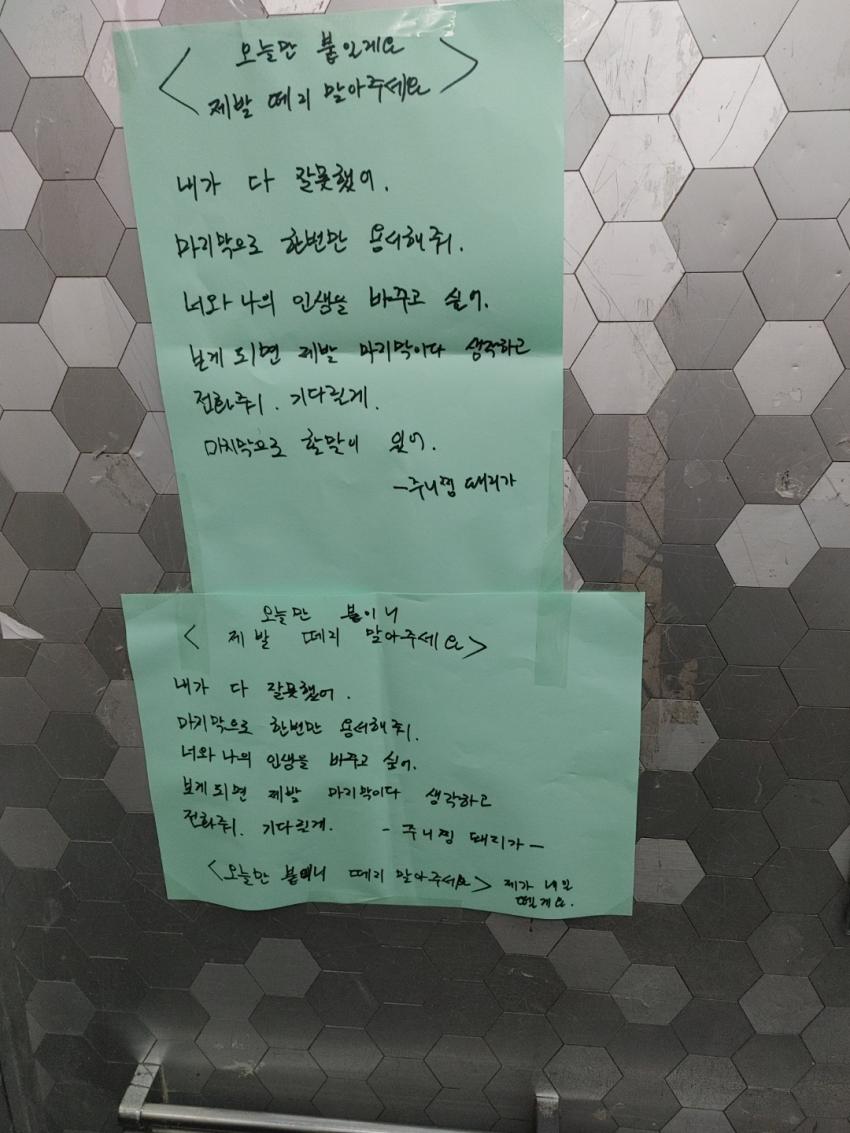 < 오늘만 붙일게요
제발 떼지 말아주세요 >
내가 다 잘못했어.
마지막으로 한번만 용서해줘.
너와 나의 인생을 바꾸고 싶어.
보게 되면 제발 마지막이다 생각하고
전화줘. 기다릴게.
마지막으로 할말이 있어.
-주니찜 때리가
오늘만 붙이니
< 제발 떼지 말아주세요 >
내가 다 잘못했어.
마지막으로 한번만 용서해줘.
너와 나의 인생을 바꾸고 싶어.
보게되면 제발 마지막이다 생각하고
전화줘. 기다릴게. - 주니찜 때리가 -
<오늘만 붙이니 떼지 말아주세요> 제가 내일
뗄게요.